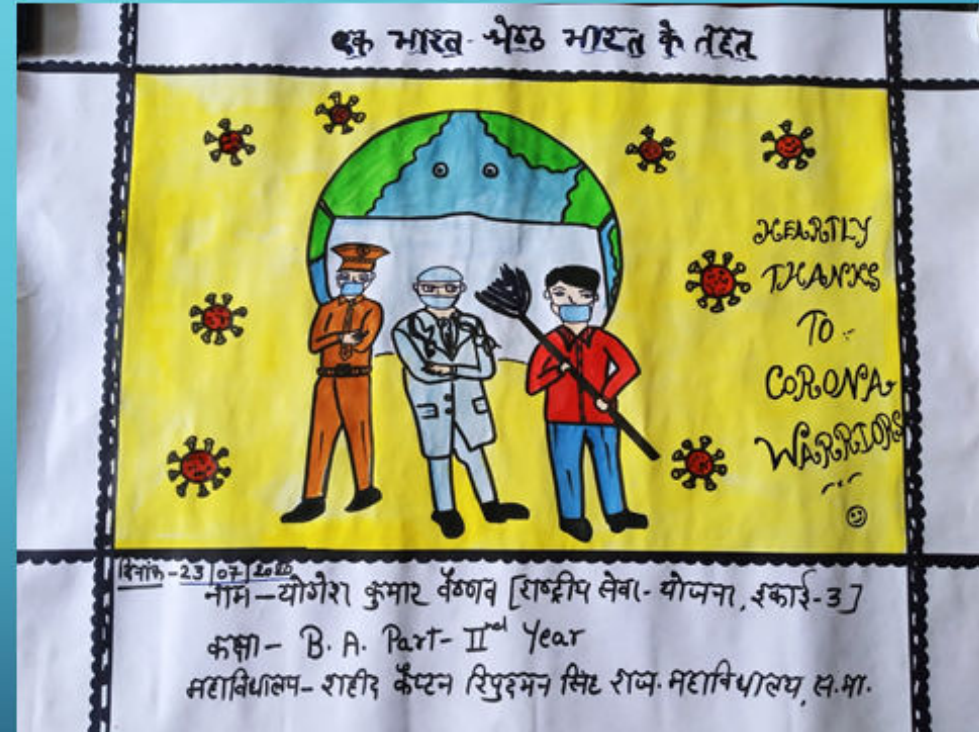 एक भारत-श्रेष्ठ भारत के तहत
HEARTLY
THANKS
TO
CORONA
WARRIORS
दिनांक-23/07/2020
नाम-योगेश कुमार वैष्णव [राष्ट्रीय सेवा-योजना, इकाई-3]
कक्षा- B. A. Part- IInd Year
महाविधालय- शहीद कैप्टन रिपुदमन सिंह राज. महाविधालय, स.मा.